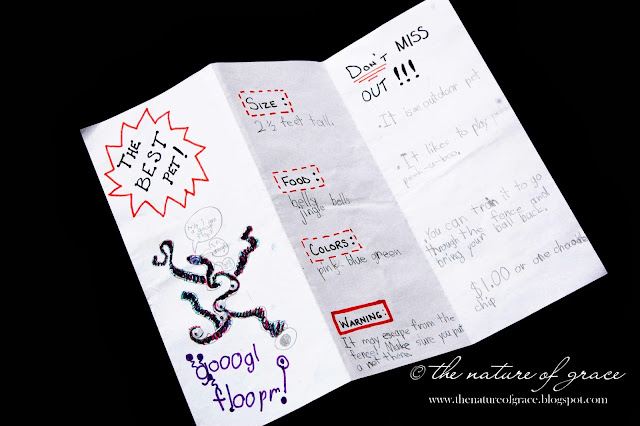 THE
BEST
PET!
gooogl
floopm!
SIZE:
2½ feet tall.
FOOD:
belly
jingle bells
COLORS:
pink blue green
WARNING:
It may escape from the
fence! Make sure you put
a not there.
DON'T MISS
OUT!!!
. It is outdoor pet
. It likes to play peek-
peek-a-boo.
You can train it to go
through the fence and
bring your ball back.
$1.00 or one chocolate
chip
© the nature of grace
www.thenatureofgrace.blogspot.com